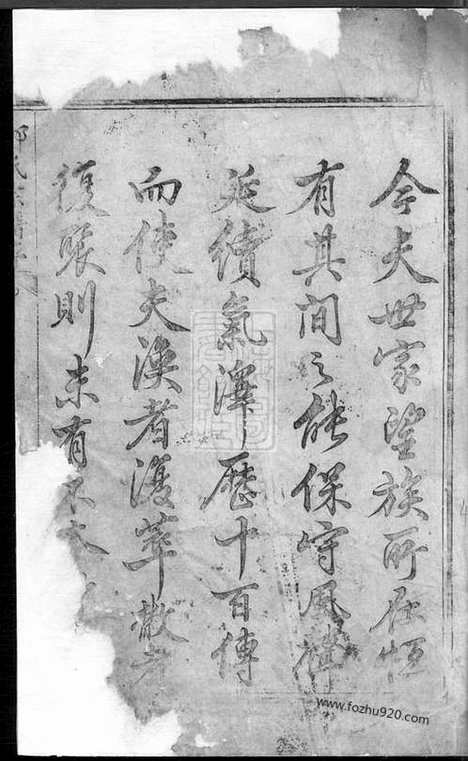 今夫世家望族所在恒
有其間之能保守風
延續氣澤歷十百傳
而使夫渙者復萃散者
復聚則未有不
www.fozhu920.com